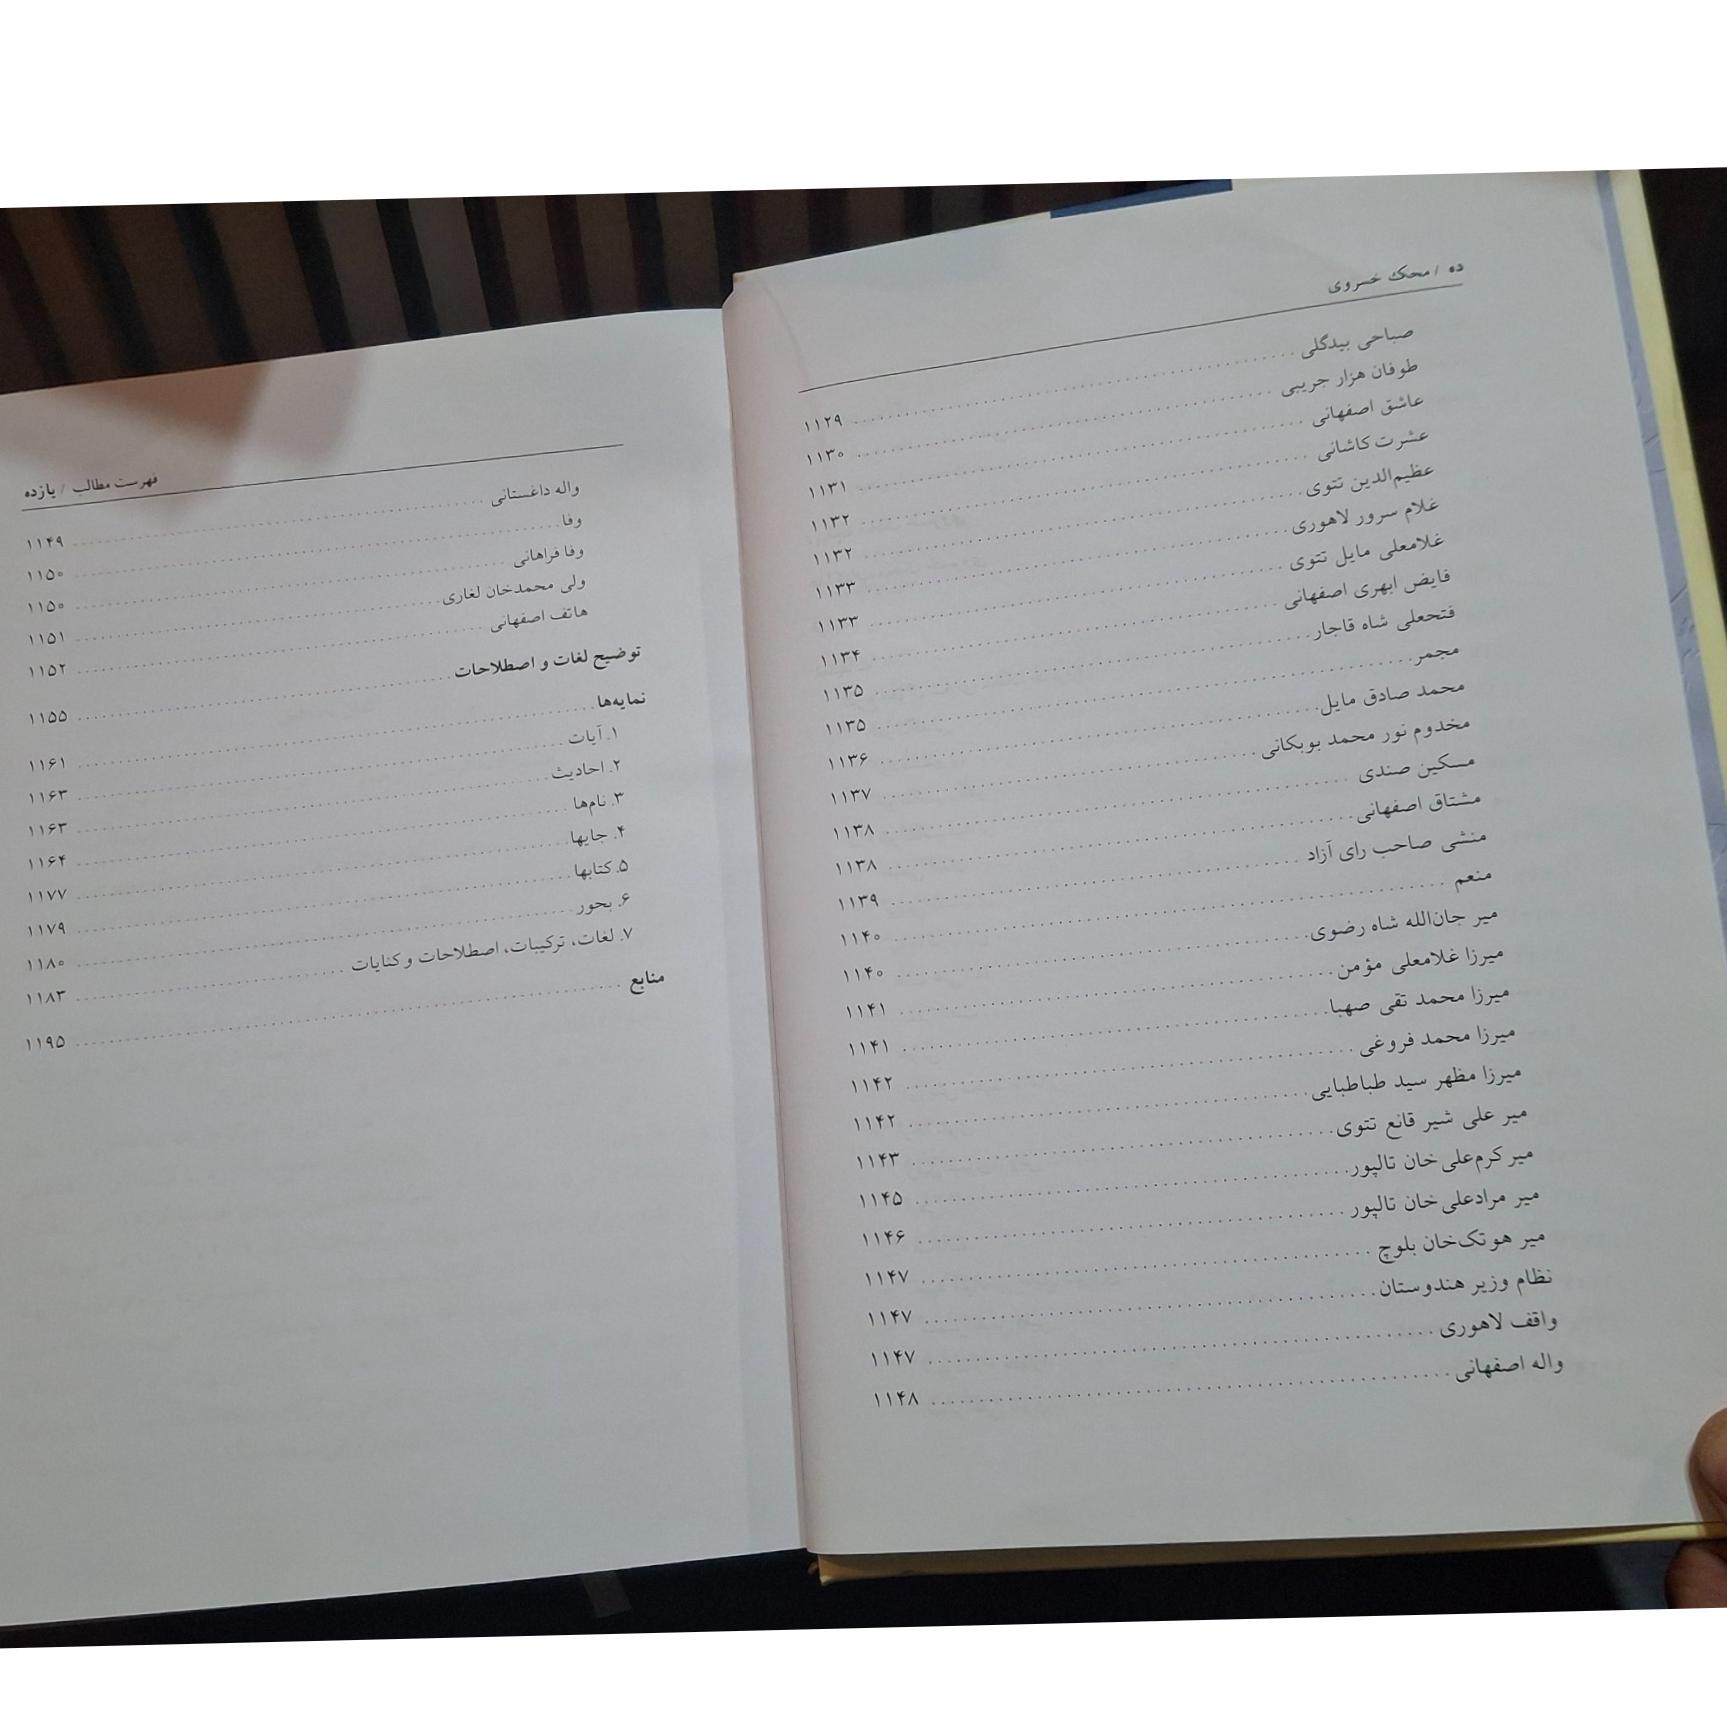 ده / محک خسروی
صباحی بیدگلی ۱۱۲۹
طوفان هزار جریبی ۱۱۳۰
عاشق اصفهانی ۱۱۳۱
عشرت کاشانی ۱۱۳۲
عظیم‌الدین تتوی ۱۱۳۲
غلام سرور لاهوری ۱۱۳۳
غلامعلی مایل تتوی ۱۱۳۳
فایض ابهری اصفهانی ۱۱۳۴
فتحعلی شاه قاجار ۱۱۳۵
مجمر ۱۱۳۵
محمد صادق مایل ۱۱۳۶
مخدوم نور محمد بوبکانی ۱۱۳۷
مسکین صندی ۱۱۳۸
مشتاق اصفهانی ۱۱۳۸
منشی صاحب رای آزاد ۱۱۳۹
منعم ۱۱۴۰
میر جان‌الله شاه رضوی ۱۱۴۰
میرزا غلامعلی مؤمن ۱۱۴۱
میرزا محمد تقی صهبا ۱۱۴۱
میرزا محمد فروغی ۱۱۴۲
میرزا مظهر سید طباطبایی ۱۱۴۲
میر علی شیر قانع تتوی ۱۱۴۳
میر کرم‌علی خان تالپور ۱۱۴۵
میر مرادعلی خان تالپور ۱۱۴۶
میر هوتک‌خان بلوچ ۱۱۴۷
نظام وزیر هندوستان ۱۱۴۷
واقف لاهوری ۱۱۴۷
واله اصفهانی ۱۱۴۸
فهرست مطالب / یازده
واله داغستانی ۱۱۴۹
وفا ۱۱۵۰
وفا فراهانی ۱۱۵۰
ولی محمدخان لغاری ۱۱۵۱
هاتف اصفهانی ۱۱۵۲
توضیح لغات و اصطلاحات ۱۱۵۵
نمایه‌ها ۱۱۶۱
۱. آیات ۱۱۶۳
۲. احادیث ۱۱۶۳
۳. نام‌ها ۱۱۶۴
۴. جایها ۱۱۷۷
۵. کتابها ۱۱۷۹
۶. بحور ۱۱۸۰
۷. لغات، ترکیبات، اصطلاحات و کنایات ۱۱۸۳
منابع ۱۱۹۵